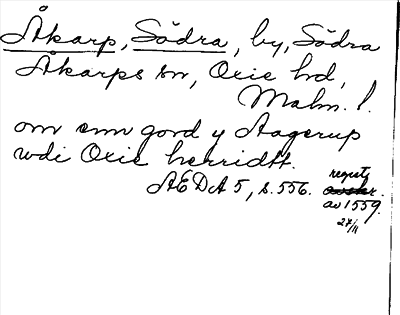 Åkarp, Södra, by, Södra
Åkarps sn, Oxie hd,
Malm. l.
om enn gord y Aagerup
wdi Oxie herridtt.
AEDA 5, s. 556. regest
avskr.
av 1559.
27/11